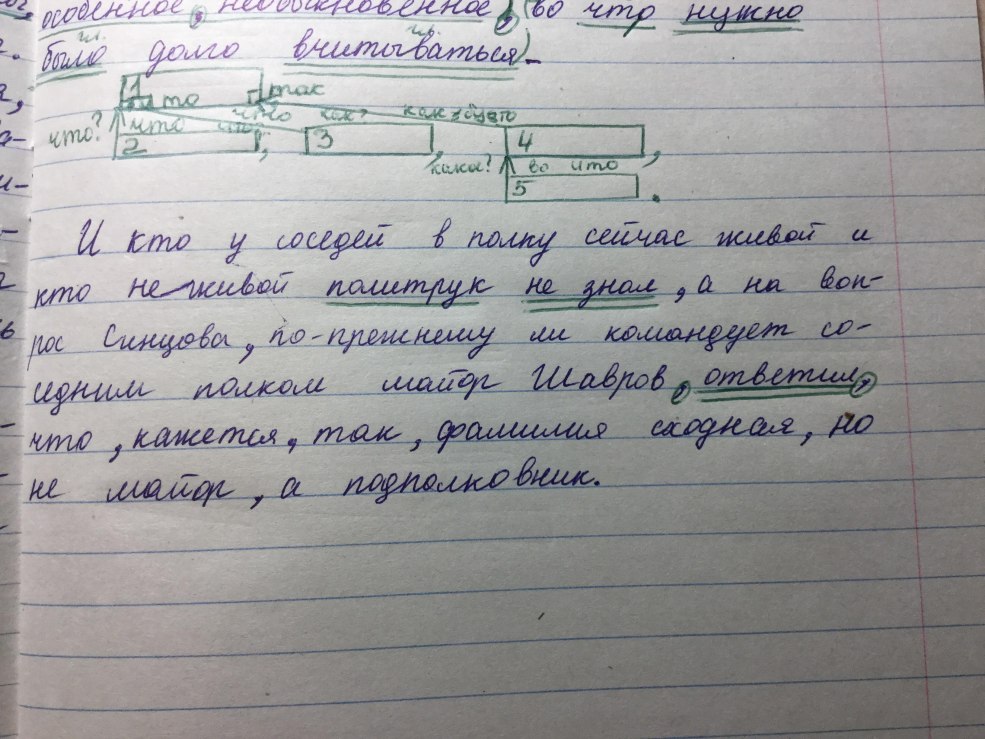 особенное, необыкновенное, во что нужно
гл. гл.
было долго вчитываться.
1
что так
что? что как? как будто
2, 3, 4,
какое? во что
5.
И кто у соседей в полку сейчас живой и
кто не живой политрук не знал, а на воп-
рос Синцова, по-прежнему ли командует со-
седним полком майор Шавров, ответил,
что, кажется, так, фамилия сходная, но
не майор, а подполковник.